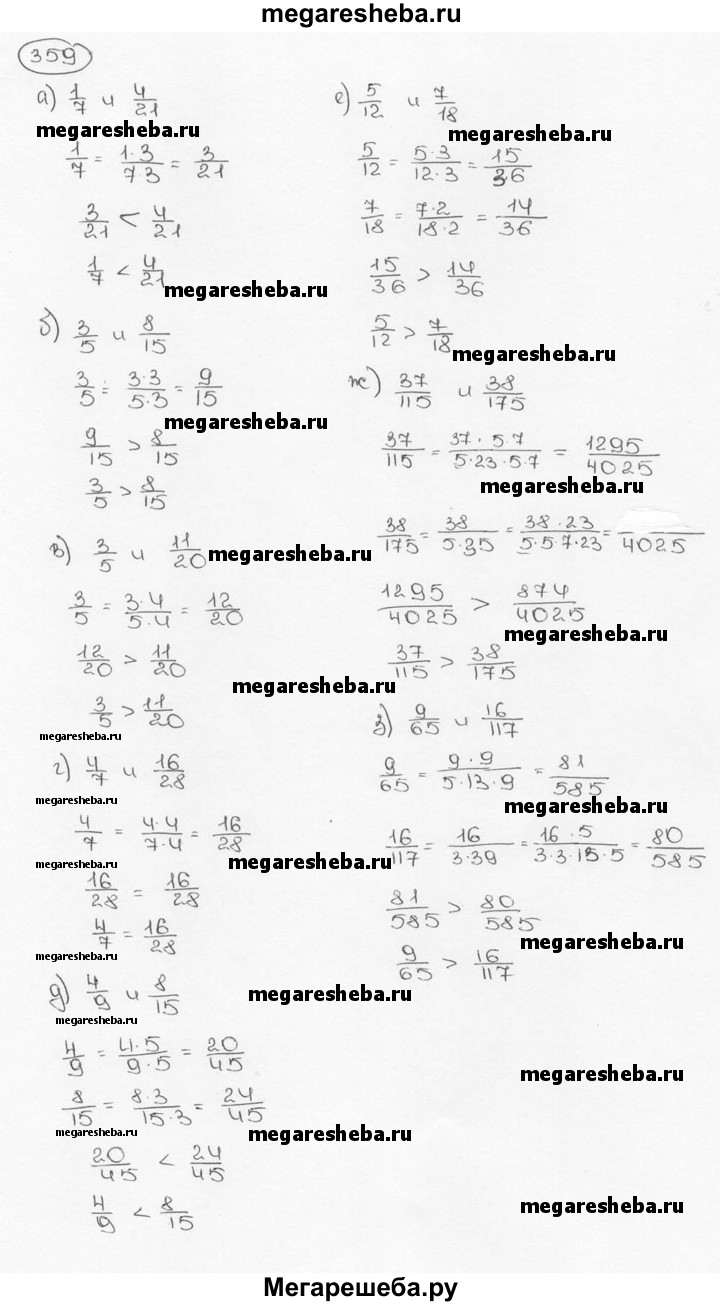 megaresheba.ru
359
а) 1/7 и 4/21
megaresheba.ru
1/7 = 1·3/7·3 = 3/21
3/21 < 4/21
1/7 < 4/21
megaresheba.ru
б) 3/5 и 8/15
3/5 = 3·3/5·3 = 9/15
megaresheba.ru
9/15 > 8/15
3/5 > 8/15
в) 3/5 и 11/20
megaresheba.ru
3/5 = 3·4/5·4 = 12/20
12/20 > 11/20
megaresheba.ru
3/5 > 11/20
megaresheba.ru
г) 4/7 и 16/28
megaresheba.ru
4/7 = 4·4/7·4 = 16/28
megaresheba.ru
megaresheba.ru
16/28 = 16/28
4/7 = 16/28
megaresheba.ru
д) 4/9 и 8/15
megaresheba.ru
megaresheba.ru
4/9 = 4·5/9·5 = 20/45
8/15 = 8·3/15·3 = 24/45
megaresheba.ru
megaresheba.ru
20/45 < 24/45
4/9 < 8/15
е) 5/12 и 7/18
megaresheba.ru
5/12 = 5·3/12·3 = 15/36
7/18 = 7·2/18·2 = 14/36
15/36 > 14/36
5/12 > 7/18
megaresheba.ru
ж) 37/115 и 38/175
37/115 = 37·5·7/5·23·5·7 = 1295/4025
megaresheba.ru
38/175 = 38/5·35 = 38·23/5·5·7·23 = /4025
1295/4025 > 874/4025
megaresheba.ru
37/115 > 38/175
з) 9/65 и 16/117
9/65 = 9·9/5·13·9 = 81/585
megaresheba.ru
16/117 = 16/3·39 = 16·5/3·3·15·5 = 80/585
81/585 > 80/585
megaresheba.ru
9/65 > 16/117
megaresheba.ru
megaresheba.ru
Мегарешеба.ру